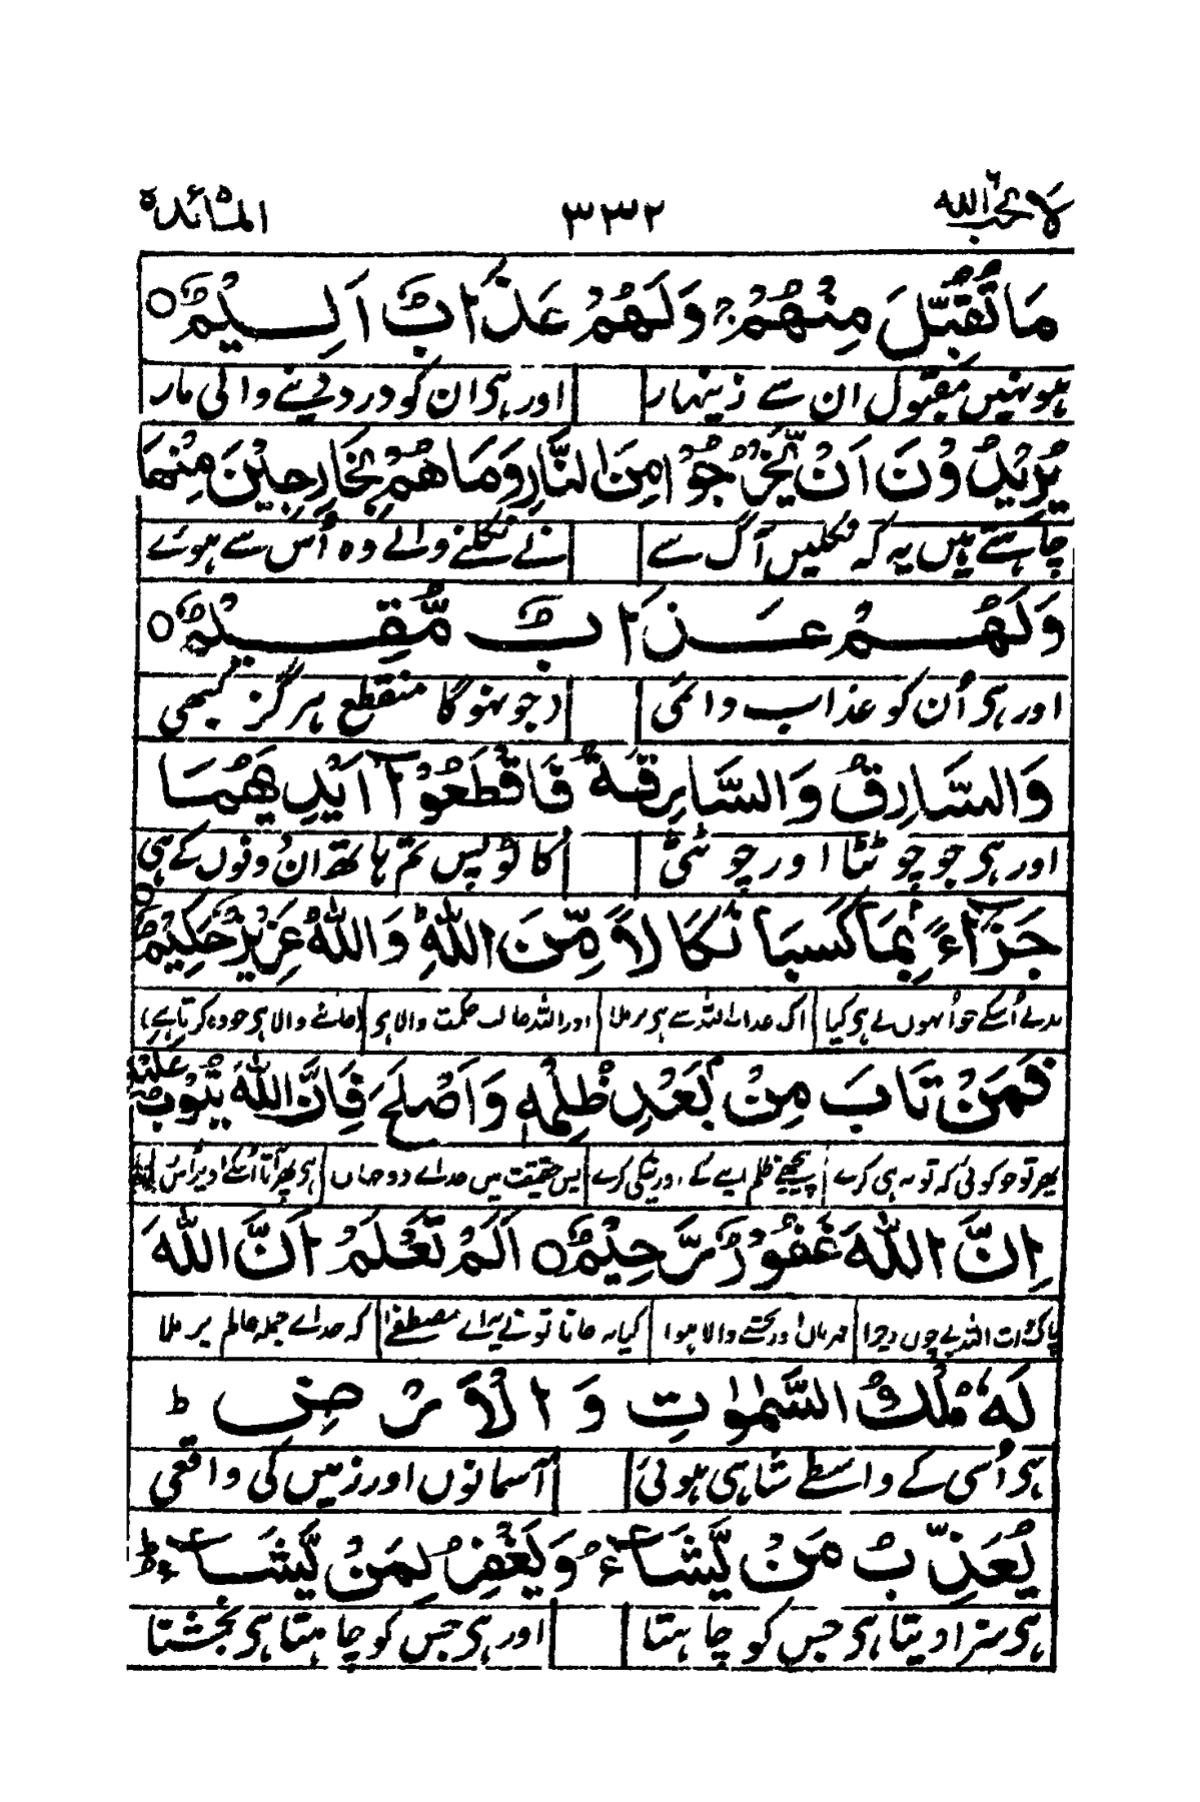 لا يحب الله ٣٣٢ المائدة
مَا تُقُبِّلَ مِنْهُمْ ۚ وَلَهُمْ عَذَابٌ اَلِيْمٌ ○
ہو نہیں مقبول ان سے زینہار اور ہی ان کو درد دینے والی مار
يُرِيْدُوْنَ اَنْ يَّخْرُجُوْا مِنَ النَّارِ وَمَا هُمْ بِخَارِجِيْنَ مِنْهَا
چاہتے ہیں یہ کہ نکلیں آگ سے نے نکلنے والے وہ اُس سے ہوئے
وَلَهُمْ عَذَابٌ مُّقِيْمٌ ○
اور ہی اُن کو عذاب دائمی جو نہوگا منقطع ہرگز کبھی
وَالسَّارِقُ وَالسَّارِقَةُ فَاقْطَعُوْٓا اَيْدِيَهُمَا
اور ہی جو چوٹٹا اور چوٹٹی کاٹو پس تم ہاتھ ان دونوں کے ہی
جَزَآءًۢ بِمَا كَسَبَا نَكَالًا مِّنَ اللّٰهِ ؕ وَاللّٰهُ عَزِيْزٌ حَكِيْمٌ ○
بدلے اُسکے جو اُنہوں نے ہی کیا اک عذاب اللہ سے ہی برملا اور اللہ غالب حکمت والا ہی (جاننے والا ہی جو وہ کرتا ہے)
فَمَنْ تَابَ مِنْۢ بَعْدِ ظُلْمِهٖ وَاَصْلَحَ فَاِنَّ اللّٰهَ يَتُوْبُ عَلَيْهِ
پھر تو جو کوئی کہ توبہ ہی کرے پیچھے ظلم اپنے کے اور نیکی کرے پس حقیقت میں خدائے دو جہاں ہی پھر آتا اُسکے اوپر
اِنَّ اللّٰهَ غَفُوْرٌ رَّحِيْمٌ ○ اَلَمْ تَعْلَمْ اَنَّ اللّٰهَ
پاک ذات اللہ بے چوں و چرا مہرباں اور بخشنے والا ہوا کیا نہ جانا تو نے یہ اے مصطفےٰ کہ خدائے جملہ عالم برملا
لَهٗ مُلْكُ السَّمٰوٰتِ وَالْاَرْضِ ؕ
ہی اُسی کے واسطے شاہی ہوئی آسمانوں اور زمیں کی واقعی
يُعَذِّبُ مَنْ يَّشَآءُ وَيَغْفِرُ لِمَنْ يَّشَآءُ ؕ
ہی سزا دیتا ہی جس کو چاہتا اور ہی جس کو چاہتا ہی بخشتا